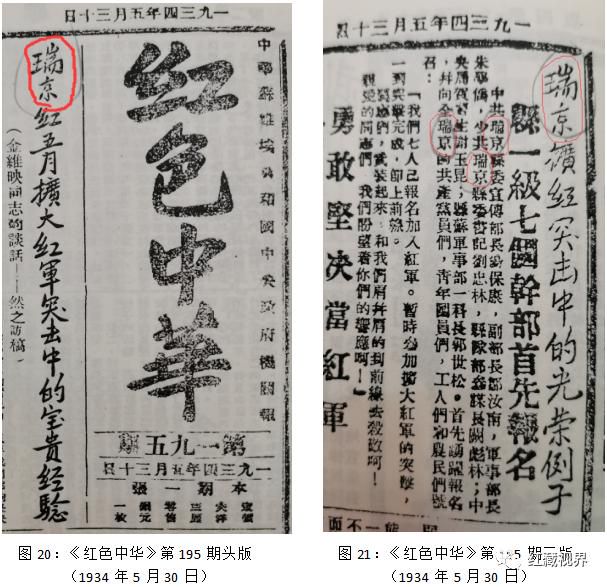 一九三四年五月三十日
中華蘇維埃共和國中央政府機關報
紅色中華
第一九五期
一九三四年五月三十日
本期一張
瑞京紅五月擴大紅軍突击中的宝貴經驗
(金維映同志的談話——然之訪稿)
图 20：《红色中华》第 195 期头版
（1934 年 5 月 30 日）
一九三四年五月三十日
瑞京擴紅突击中的光荣例子
縣一級七個幹部首先報名
勇敢堅决當紅軍
中共瑞京縣委宣傳部長劉保慶，副部長鄒汝南，軍事部長
朱學僑，少共瑞京縣委書記劉忠林，縣隊部參謀長闕彪林；中
央局 謝玉昆；縣蘇軍事部一科長郭世松。首先踴躍報名
，幷向全瑞京的共產黨員們，青年團員們，工人們和農民們號
召：
「我們七人已報名加入紅軍。暫時參加擴大紅軍的突擊，
一到突擊完成，卽上前線。
同志們，武裝起來，和我們肩幷肩的到前線去殺敵呵！
親愛的同志們，我們盼望着你們的響應啊！」
图 21：《红色中华》第 5 期二版
（1934 年 5 月 30 日）
红藏视界